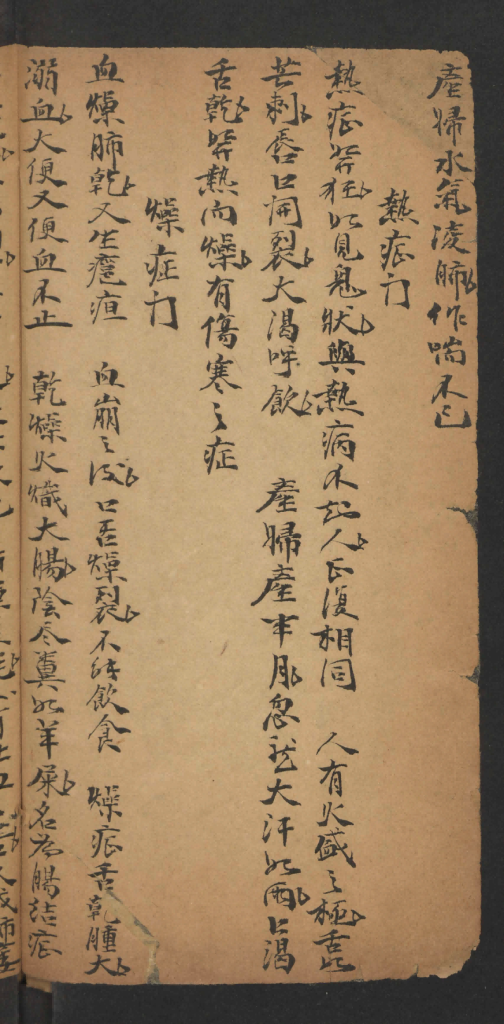 產婦水氣凌肺作喘不已
熱症門
熱症發狂如見鬼狀與熱病不起人正復相同　人有火盛之極舌如
芒刺唇口開裂大渴呼飲　產婦產半月忽然大汗如雨口渴
舌乾發熱而燥有傷寒之症
燥症門
血燥肺乾又生癰疽　血崩之後口舌燥裂不能飲食　燥症舌乾腫大
溺血大便又便血不止　乾燥火熾大腸陰尽糞如羊屎名為腸結症